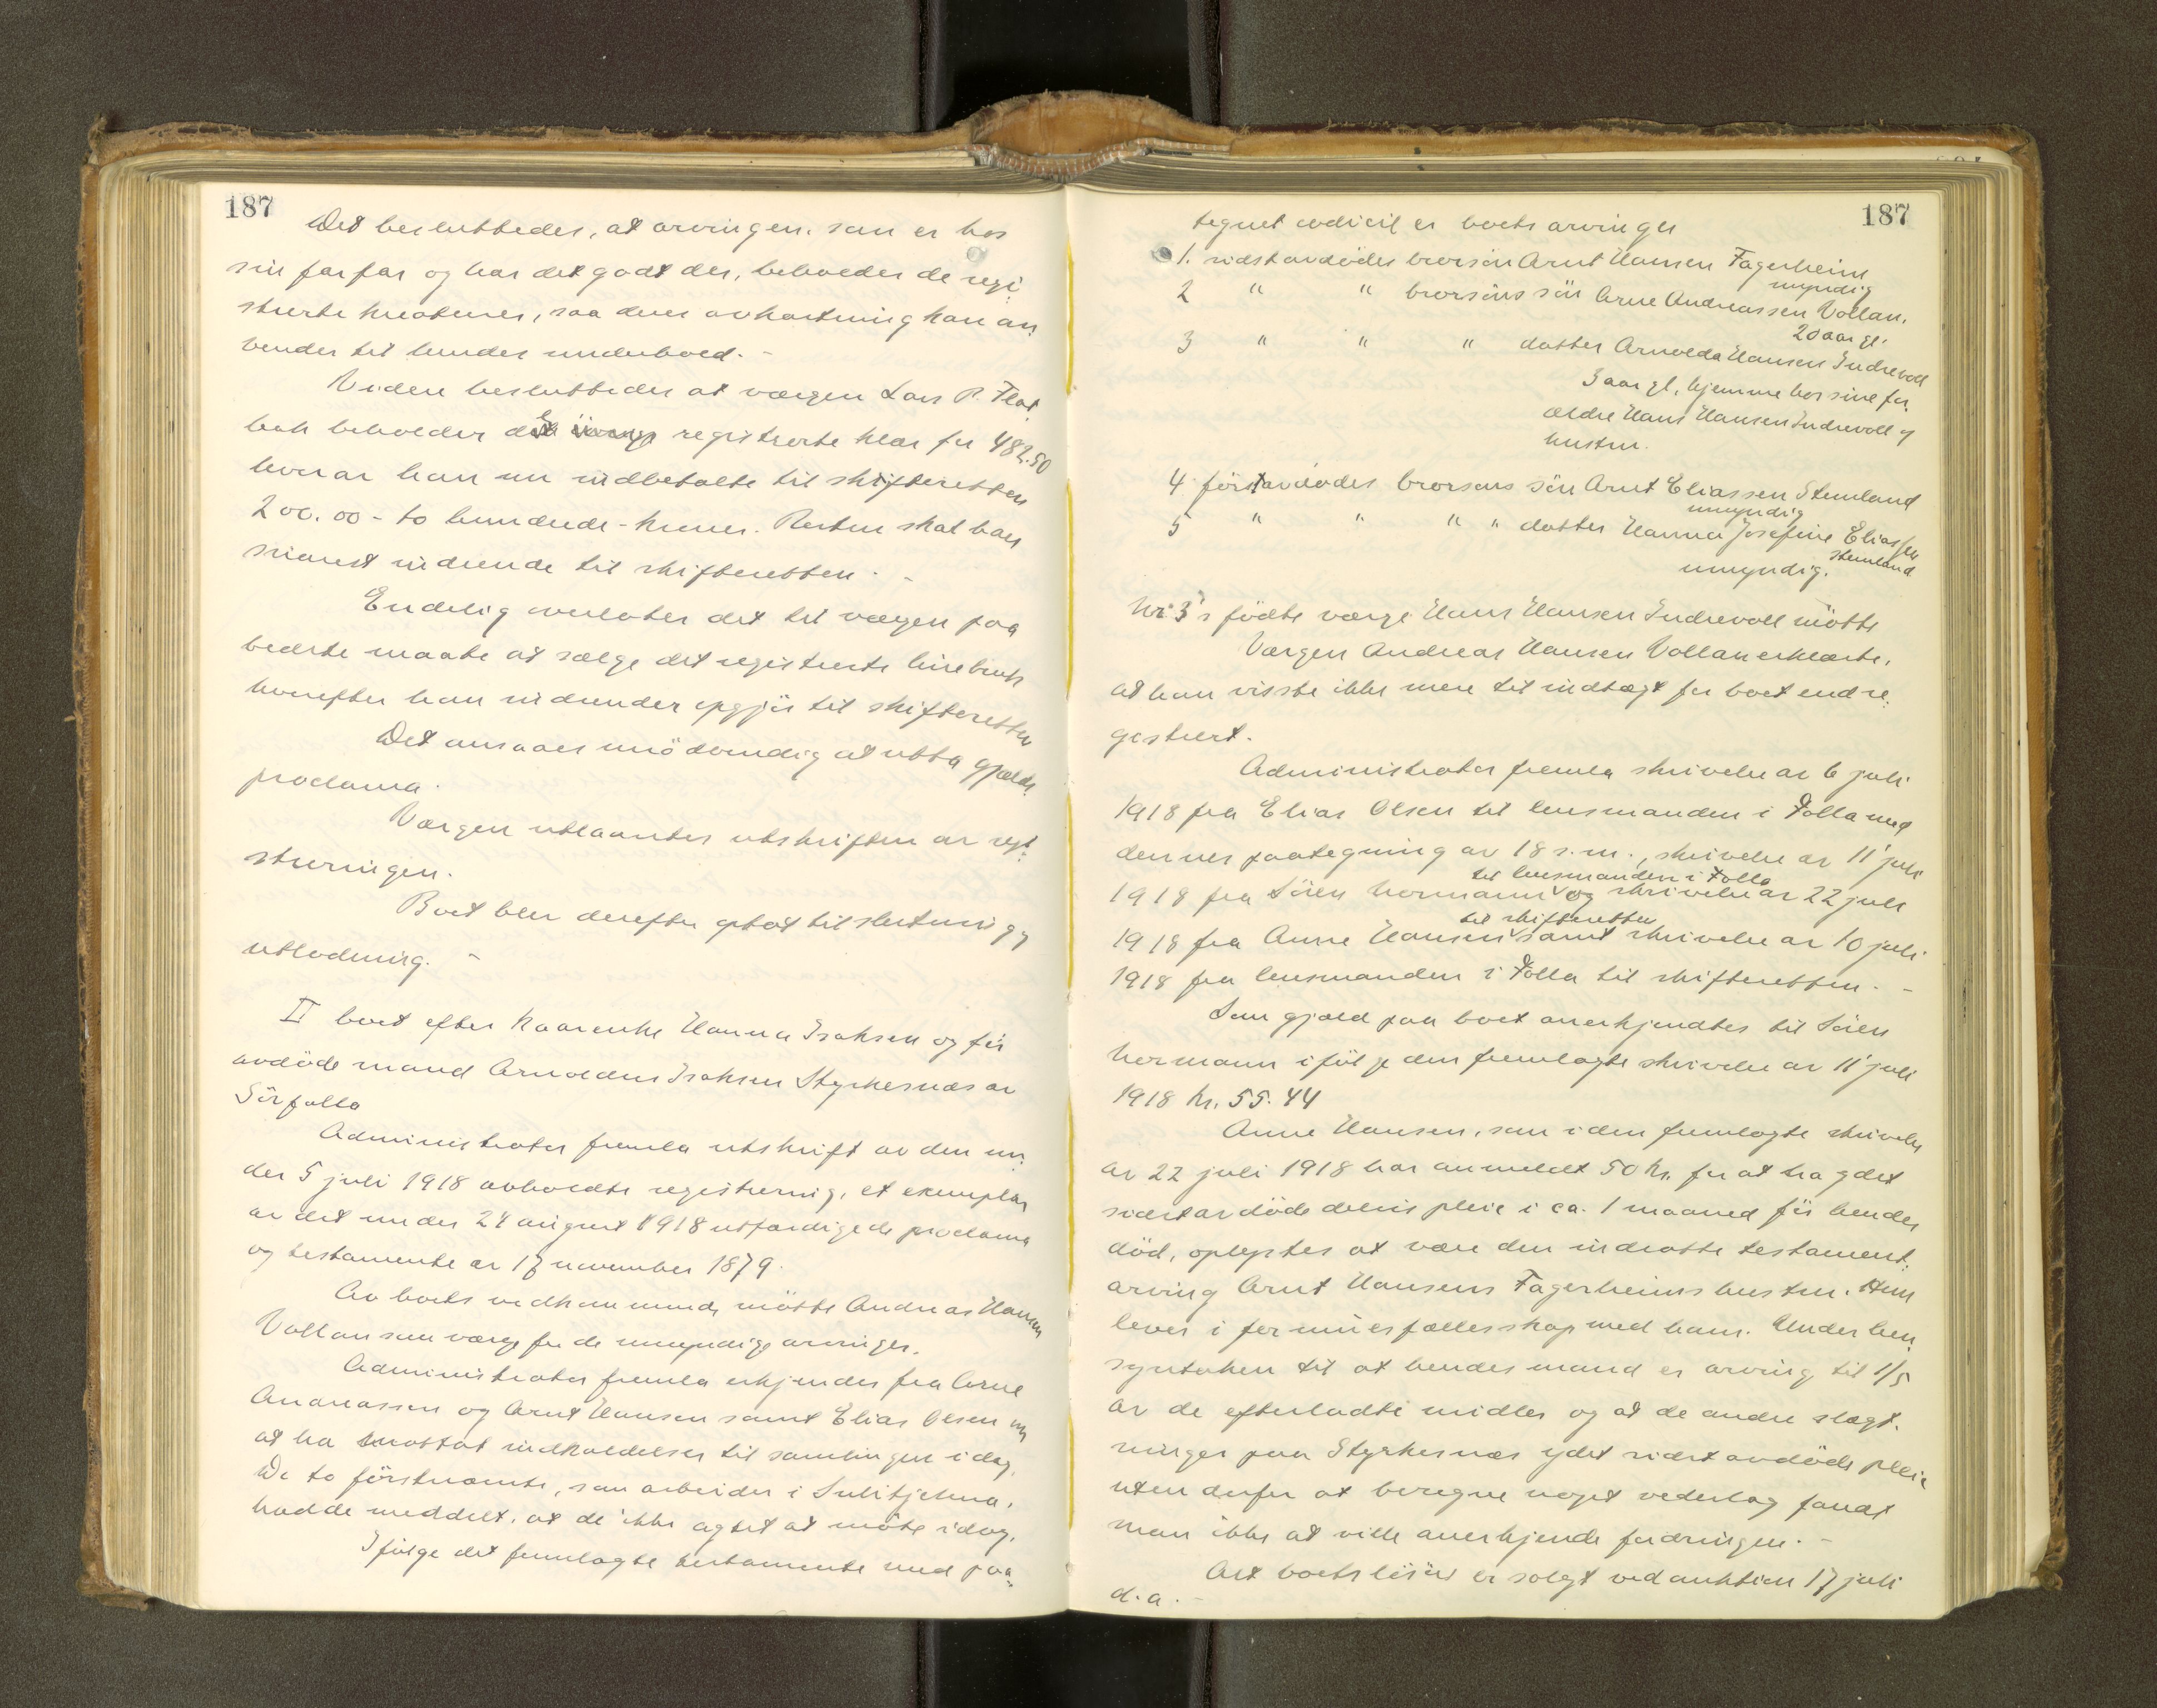 187
Det besluttedes, at arvingen, som er hos
sin farfar og har det godt der, beholder de regi-
strerte kreaturer, saa deres avkastning kan an-
vendes til hendes underhold. -
Videre besluttedes at vergen Lars P. Flat
beholder registrerte klær for 482.50
hvorav han nu indbetalte til skifteretten
200.00 - to hundrede - kroner. Resten skal han
snarest indsende til skifteretten. -
Endelig overlates det til vergen paa
bedste maate at sælge det registrerte linebruk
hvorefter han indsender opgjör til skifteretten
Det ansaaes unödvendig at utsta gjælds-
proclama.
Vergen utlaantes utskriften av regi-
streringen.
Boet blev derefter optat til slutning og
utlodning. -
II boet efter Kaarenke Hanna Isaksen og för
avdöde mand Arnoldus Isaksen Styrkesnæs av
Sörfolla
Administrator fremla utskrift av den un-
der 5 juli 1918 avholdte registrering, et exemplar
av det under 24 august 1918 utfærdigede proclama
og testamente av 17 november 1879.
Av boets vedkommende mötte Andreas Hansen
Vollan som verge for de umyndige arvinger.
Administrator fremla erkjendes fra Arne
Andreassen og Arnt Hansen samt Elias Olsen om
at ha mottat indkaldelser til samlingen idag.
De to förstnævnte, som arbeider i Sulitjelma,
hadde meddelt, at de ikke agtet at möte idag.
Ifölge det fremlagte testamente med paa-
187
tegnet codicil er boets arvinger
1. sidstavdödes brorsön Arnt Hansen Fagerheim
myndig
2 " " brorsöns sön Arne Andreassen Vollan,
20 aar gl.
3 " " " datter Arnolda Hansen Indrevoll
3 aar gl, hjemme hos sine for-
ældre Hans Hansen Indrevoll og
hustru.
4 förstavdödes brorsöns sön Arnt Eliassen Stemland
umyndig
5 " " " " datter Hanna Josefine Eliassen
Stemland
umyndig.
Nr 3's födte verge Hans Hansen Indrevoll mötte
Vergen Andreas Hansen Vollan erklærte,
at han visste ikke mere til indtægt for boet end re-
gistrert.
Administrator fremla skrivelse av 6 juli
1918 fra Elias Olsen til lensmanden i Folla med
dennes paategning av 18 s.m., skrivelse av 11' juli
til lensmanden i Folla
1918 fra Sören Hermann og skrivelse av 22 juli
til skifteretten
1918 fra Anne Hansen samt skrivelse av 10 juli
1918 fra lensmanden i Folla til skifteretten. -
Som gjæld paa boet anerkjendtes til Sören
Hermann ifölge den fremlagte skrivelse av 11' juli
1918 kr. 55.44
Anne Hansen, som i den fremlagte skrivelse
av 22 juli 1918 har anmeldt 50 kr. for at ha ydet
sidstavdöde delvis pleie i ca. 1 maaned för hendes
död, oplystes at være den indsatte testament-
arving Arnt Hansens Fagerheims hustru. Hun
lever i formuesfællesskap med ham. Under hen-
syntaken til at hendes mand er arving til 1/5
av de efterladte midler og at de andre slægt-
ninger paa Styrkesnæs ydet sidstavdöde pleie
uten derfor at beregne noget vederlag fandt
man ikke at ville anerkjende fordringen. -
Alt boets lösöre er solgt ved auktion 17 juli
d.a. -